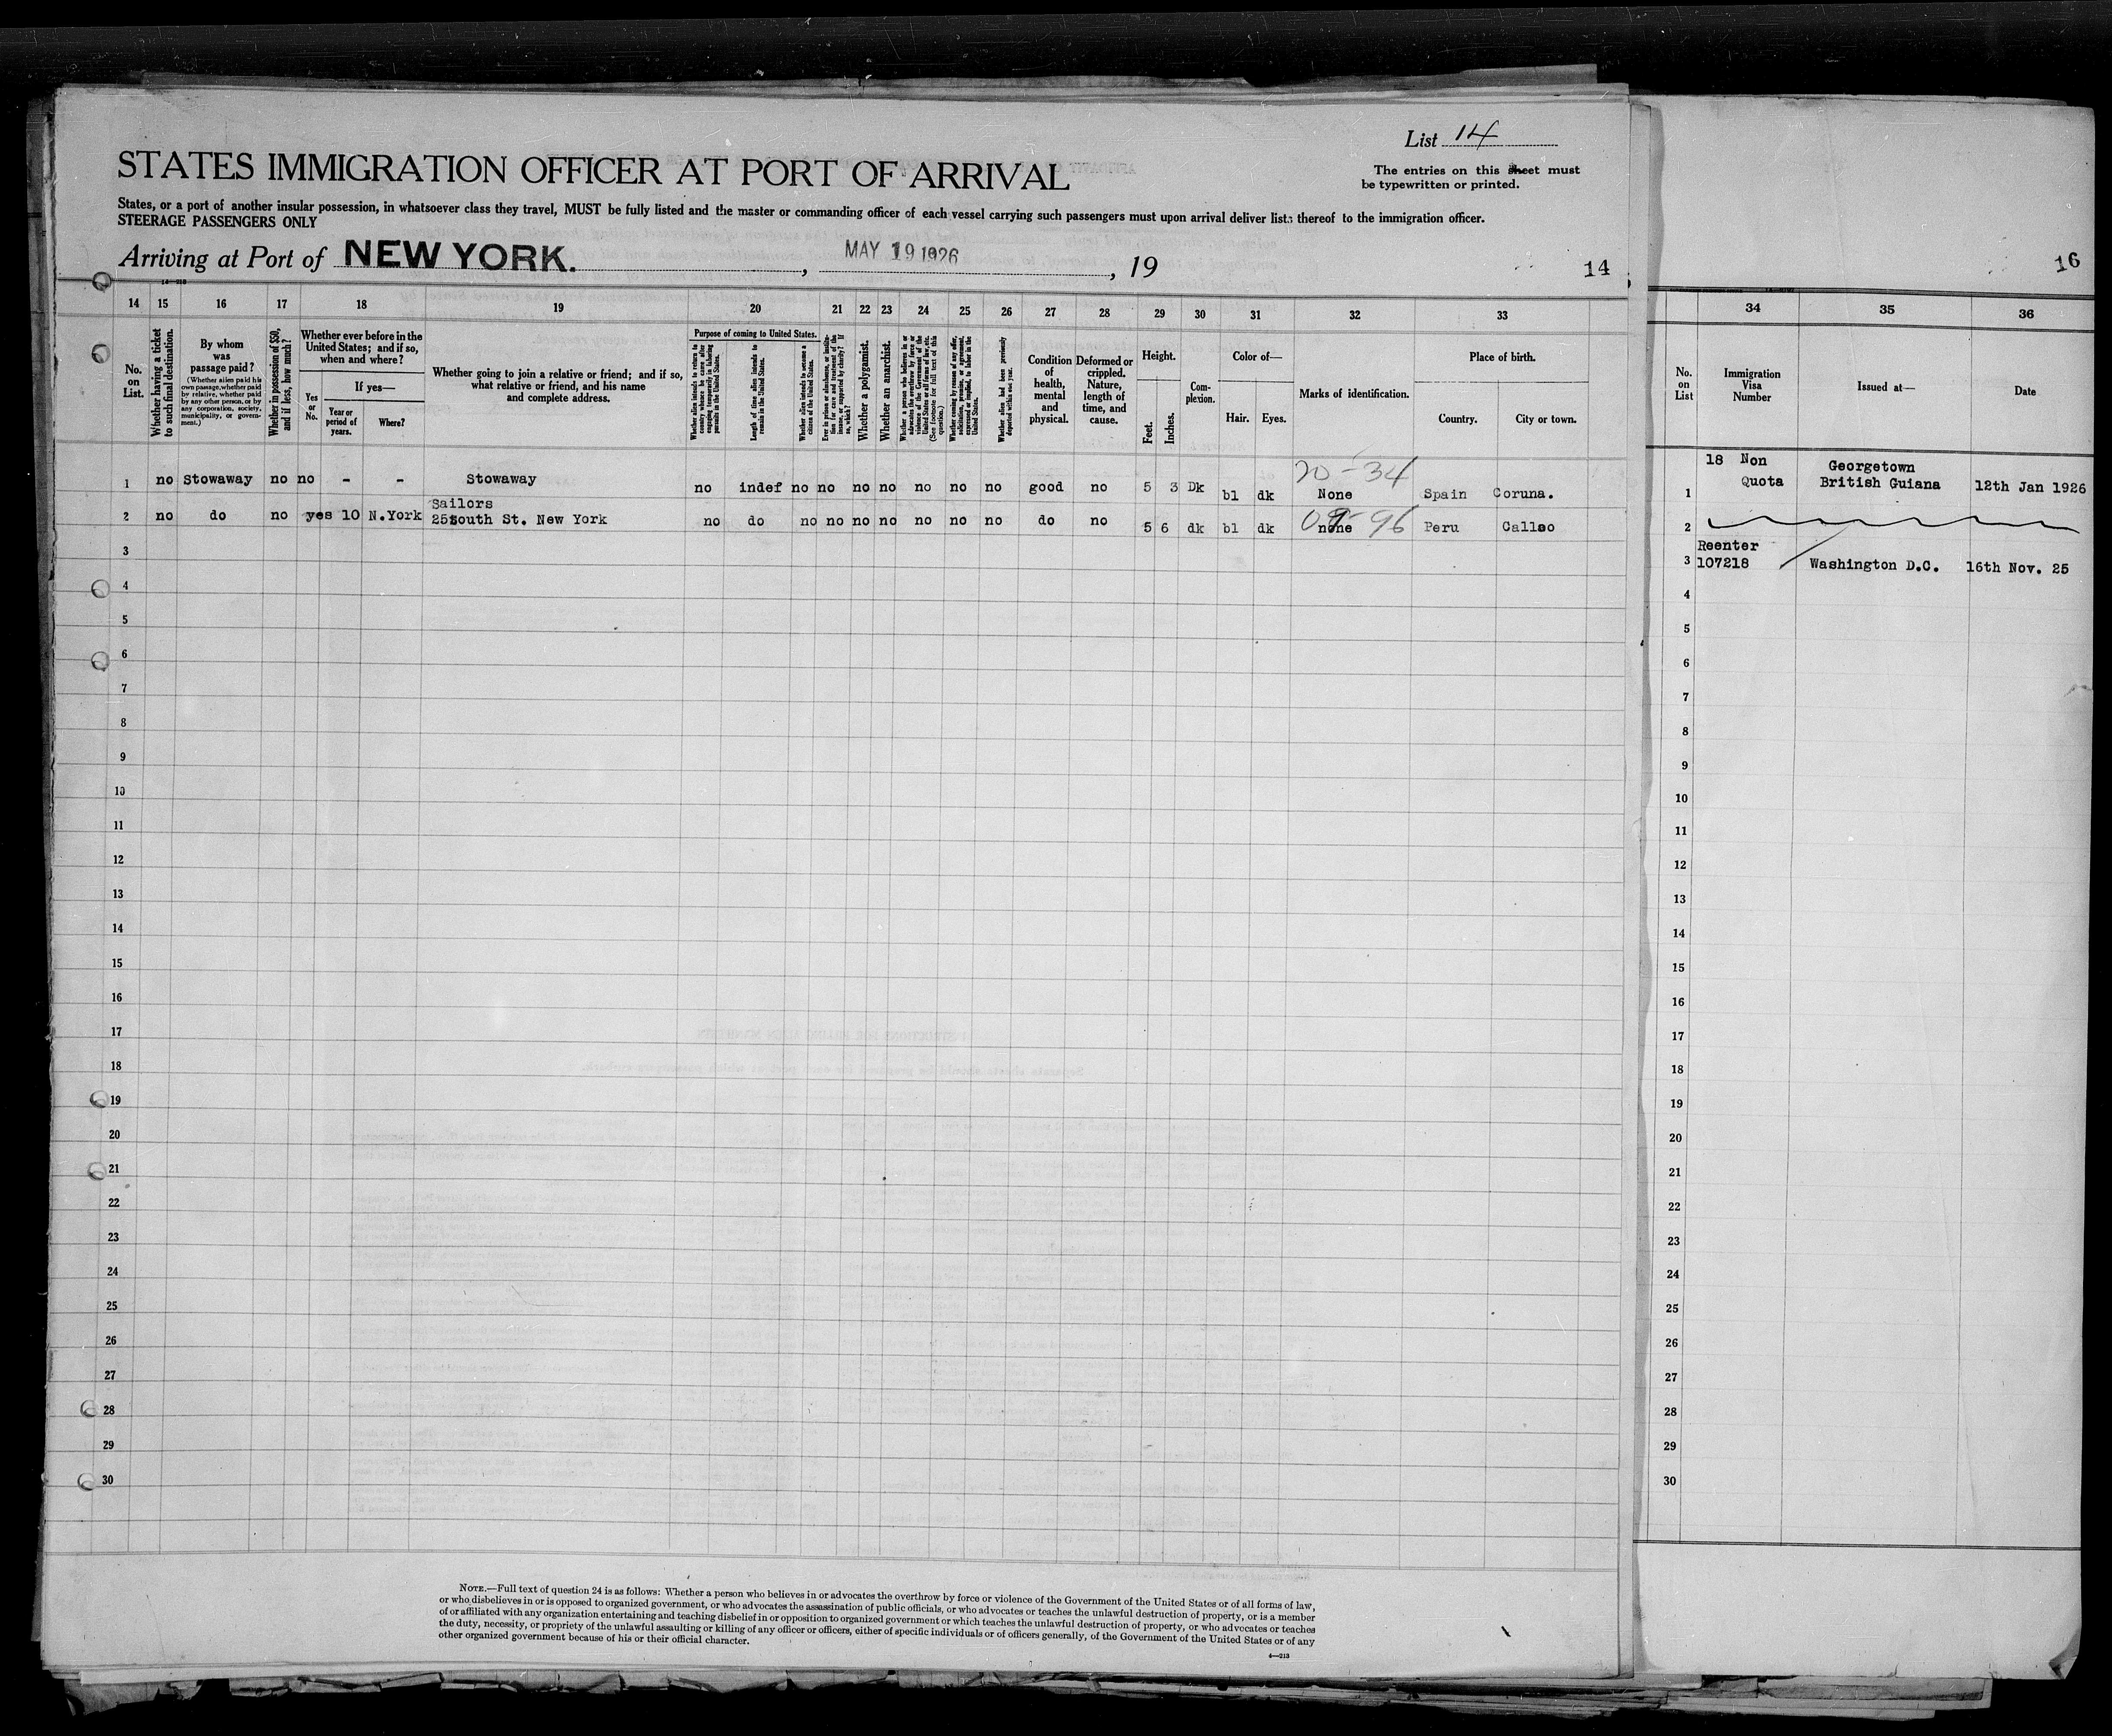 List 14
STATES IMMIGRATION OFFICER AT PORT OF ARRIVAL
The entries on this sheet must
be typewritten or printed.
States, or a port of another insular possession, in whatsoever class they travel, MUST be fully listed and the master or commanding officer of each vessel carrying such passengers must upon arrival deliver lists thereof to the immigration officer.
STEERAGE PASSENGERS ONLY
Arriving at Port of NEW YORK. , MAY 19 1926 , 19
14
16
14 15 16 17 18 19 20 21 22 23 24 25 26 27 28 29 30 31 32 33
No. on List.
Whether having a ticket to such final destination.
By whom was passage paid?
(Whether alien paid his own passage, whether paid by relative, whether paid by any other person, or by any corporation, society, municipality, or government.)
Whether in possession of $50, and if less, how much?
Whether ever before in the United States; and if so, when and where?
Yes or No.
If yes—
Year or period of years.
Where?
Whether going to join a relative or friend; and if so, what relative or friend, and his name and complete address.
Purpose of coming to United States.
Whether alien intends to return to country whence he came after engaging temporarily in laboring pursuits in the United States.
Length of time alien intends to remain in the United States.
Whether alien intends to become a citizen of the United States.
Ever in prison or almshouse, or institution for care and treatment of the insane, or supported by charity? If so, which?
Whether a polygamist.
Whether an anarchist.
Whether a person who believes in or advocates the overthrow by force or violence of the Government of the United States or all forms of law, etc. (See footnote for full text of this question.)
Whether coming by reason of any offer, solicitation, promise, or agreement, expressed or implied, to labor in the United States.
Whether alien had been previously deported within one year.
Condition of health, mental and physical.
Deformed or crippled. Nature, length of time, and cause.
Height.
Feet.
Inches.
Complexion.
Color of—
Hair.
Eyes.
Marks of identification.
Place of birth.
Country.
City or town.
20-34
1 no Stowaway no no - - Stowaway no indef no no no no no no no good no 5 3 Dk bl dk None Spain Coruna.
Sailors
2 no do no yes 10 N.York 25 South St. New York no do no no no no no no no do no 5 6 dk bl dk none Peru Callao
96
3
4
5
6
7
8
9
10
11
12
13
14
15
16
17
18
19
20
21
22
23
24
25
26
27
28
29
30
NOTE.—Full text of question 24 is as follows: Whether a person who believes in or advocates the overthrow by force or violence of the Government of the United States or of all forms of law,
or who disbelieves in or is opposed to organized government, or who advocates the assassination of public officials, or who advocates or teaches the unlawful destruction of property, or is a member
of or affiliated with any organization entertaining and teaching disbelief in or opposition to organized government or which teaches the unlawful destruction of property, or who advocates or teaches
the duty, necessity, or propriety of the unlawful assaulting or killing of any officer or officers, either of specific individuals or of officers generally, of the Government of the United States or of any
other organized government because of his or their official character.
4—213
34 35 36
No. on List
Immigration Visa Number
Issued at—
Date
18 Non Georgetown
1 Quota British Guiana 12th Jan 1926
2
Reenter
3 107218 Washington D.C. 16th Nov. 25
4
5
6
7
8
9
10
11
12
13
14
15
16
17
18
19
20
21
22
23
24
25
26
27
28
29
30